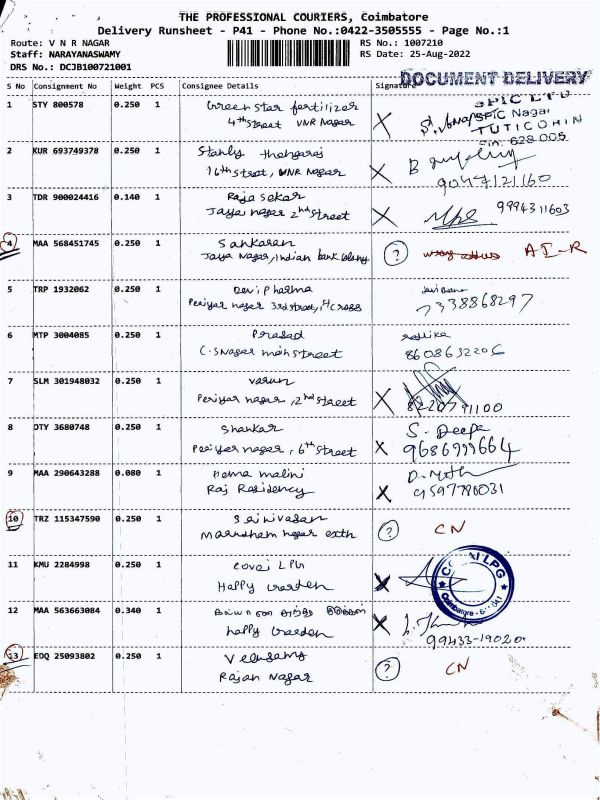 THE PROFESSIONAL COURIERS, Coimbatore
Delivery Runsheet - P41 - Phone No.:0422-3505555 - Page No.:1
Route: V N R NAGAR
Staff: NARAYANASWAMY
DRS No.: DCJB100721001
RS No.: 1007210
RS Date: 25-Aug-2022
S No Consignment No Weight PCS Consignee Details Signature
DOCUMENT DELIVERY
1 STY 800578 0.250 1 Green star fertilizer
4th street VNR Nagar
SPIC LTD
SPIC Nagar
TUTICORIN
Pin: 628 005
2 KUR 693749378 0.250 1 Stanly Thangaraj
16th street, VNR Nagar
X B
9047121160
3 TDR 900024416 0.140 1 Raja sekar
Jaya nagar 2nd street
X 9994311603
4 MAA 568451745 0.250 1 Sankaran
Jaya Nagar, Indian bank colony
? wrong address AI-R
5 TRP 1932062 0.250 1 Devi Pharma
Periyar nagar 3rd street, 4th cross
7338868297
6 MTP 3004085 0.250 1 Prasad
C.S Nagar main street
8608632206
7 SLM 301948032 0.250 1 Varun
Periyar nagar, 2nd street
X 8220791100
8 OTY 3680748 0.250 1 Shankar
Periyar nagar, 6th street
S. Deepa
X 9686999664
9 MAA 290643288 0.080 1 Hema malini
Raj Residency
X 9597790031
10 TRZ 115347590 0.250 1 Srinivasan
Marudham nagar extn
? CN
11 KMU 2284998 0.250 1 Covai LPG
Happy Garden
X
COVAI LPG
Coimbatore - 641
12 MAA 563663084 0.340 1
happy Garden
X 99433-19020
13 EDQ 25093802 0.250 1 Velusamy
Rajan Nagar
? CN